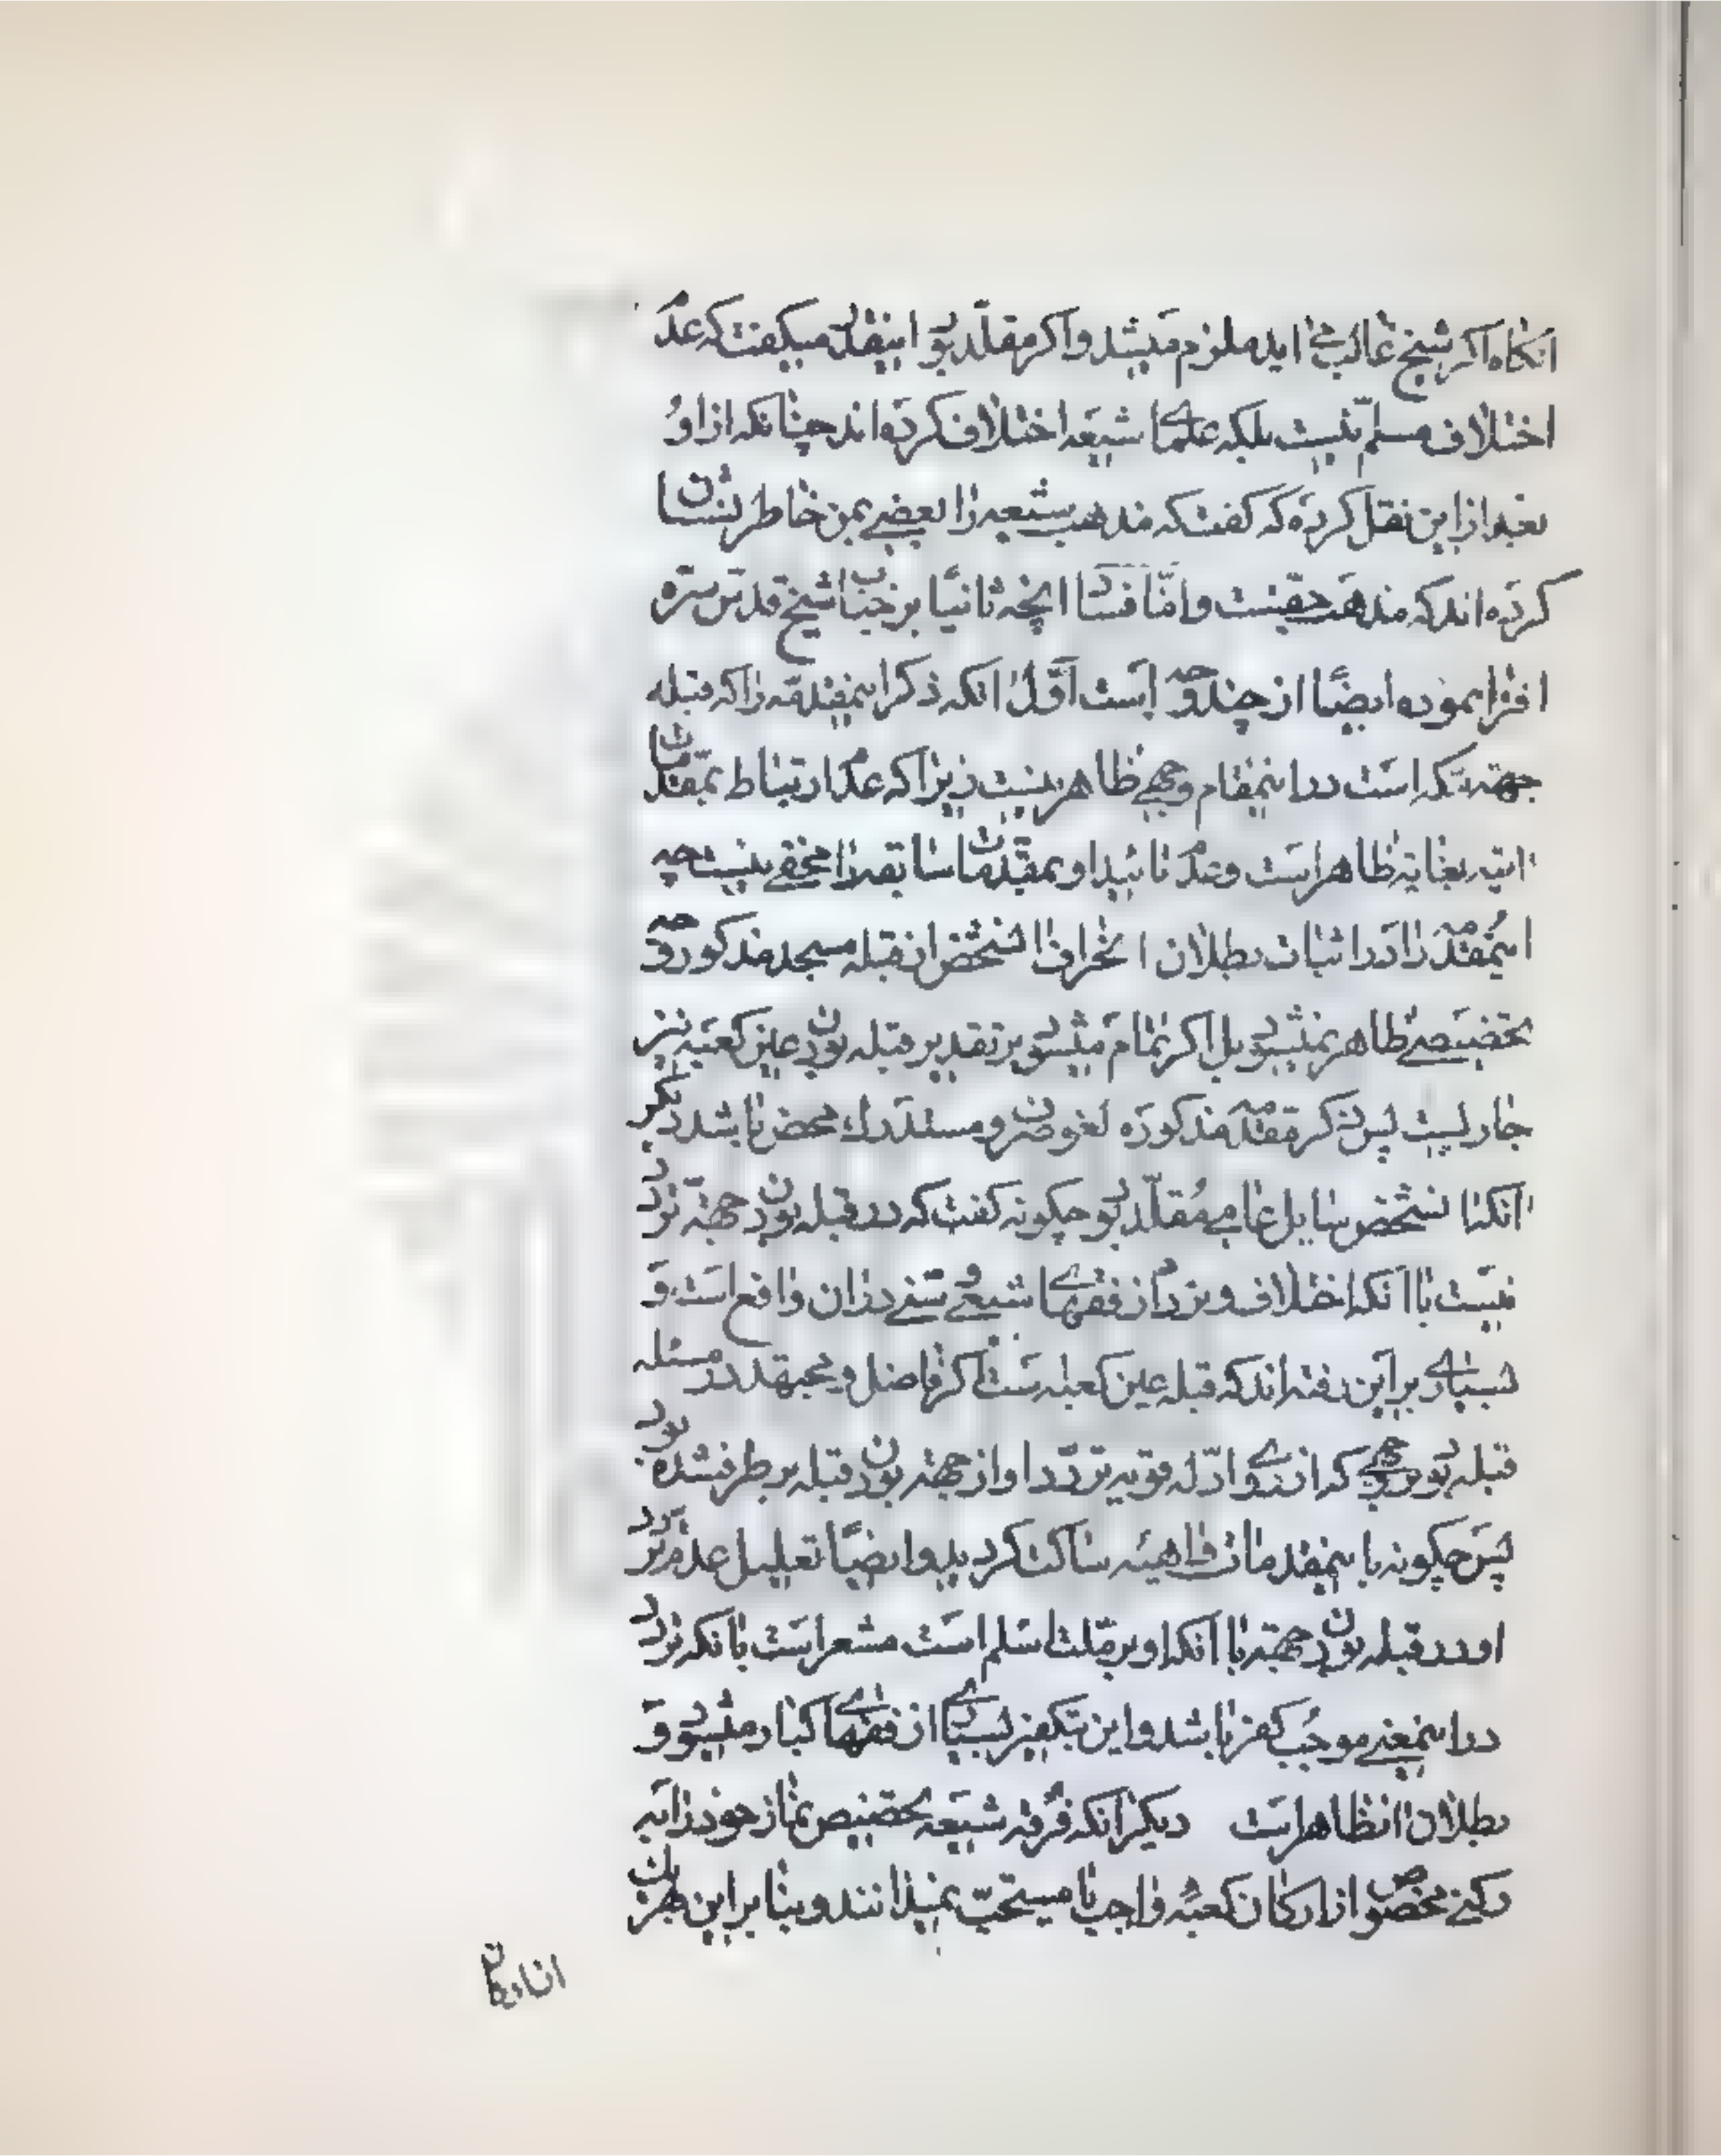 انکاه اکر شیخ غالب می اید ملزم میشد واکر مقلد بود اینقدر میکفت که عدم
اختلاف مسلم نیست بلکه علمای شیعه اختلاف کرده اند چنانکه از او
بعد از این نقل کرده که کفت که مذهب شیعه را بعضی بمن خاطر نشان
کرده اند که مذهب حقیست واما فساد انچه ثانیا بر جناب شیخ قدس سره
افترا نموده ایضا از چند وجه است اول انکه ذکر اینمقدمه را که قبله
جهة مکه است در اینمقام وجهی ظاهر نیست زیرا که عدم ارتباط بمقدمات
اتیه بغایة ظاهر است وعدم تائید او بمقدمات سابقه را مخفی نیست چه
اینمقدمه را در اثبات بطلان انحراف انشخص از قبله مسجد مذکور وجه
تخصیصی ظاهر نمیشود بل اکر تمام میشود بر تقدیر قبله بودن عین کعبه نیز
جاریست پس ذکر مقدمه مذکوره لغو صرف و مستدرک محض باشد دیکر
انکه انشخص سایل عامی مقلد بود چکونه کفت که در قبله بودن جهة تردد
نیست با انکه اختلاف و تردد از فقهای شیعی و سنی در ان واقع است و
بسیاری بر این رفته اند که قبله عین کعبه است اکر فاضل و مجتهد در مسئله
قبله بود بر وجهی که از روی ادله قویه تردد او از جهة بودن قبله بر طرف شده بود
پس چکونه با اینمقدمات واهیه ساکت کردید وایضا تعلیل عدم تردد
او در قبله بودن جهة با انکه او بر ملت اسلم است مشعر است بانکه تردد
در اینمعنی موجب کفر باشد و این تکفیر بسیاری از فقهای کبار میشود و
بطلان ان ظاهر است دیکر انکه فرقه شیعه تخصیص نماز خود را به
رکنی مخصوص از ارکان کعبه واجب یا مستحب نمیدانند و بنا بر این هر یک
از ارکان